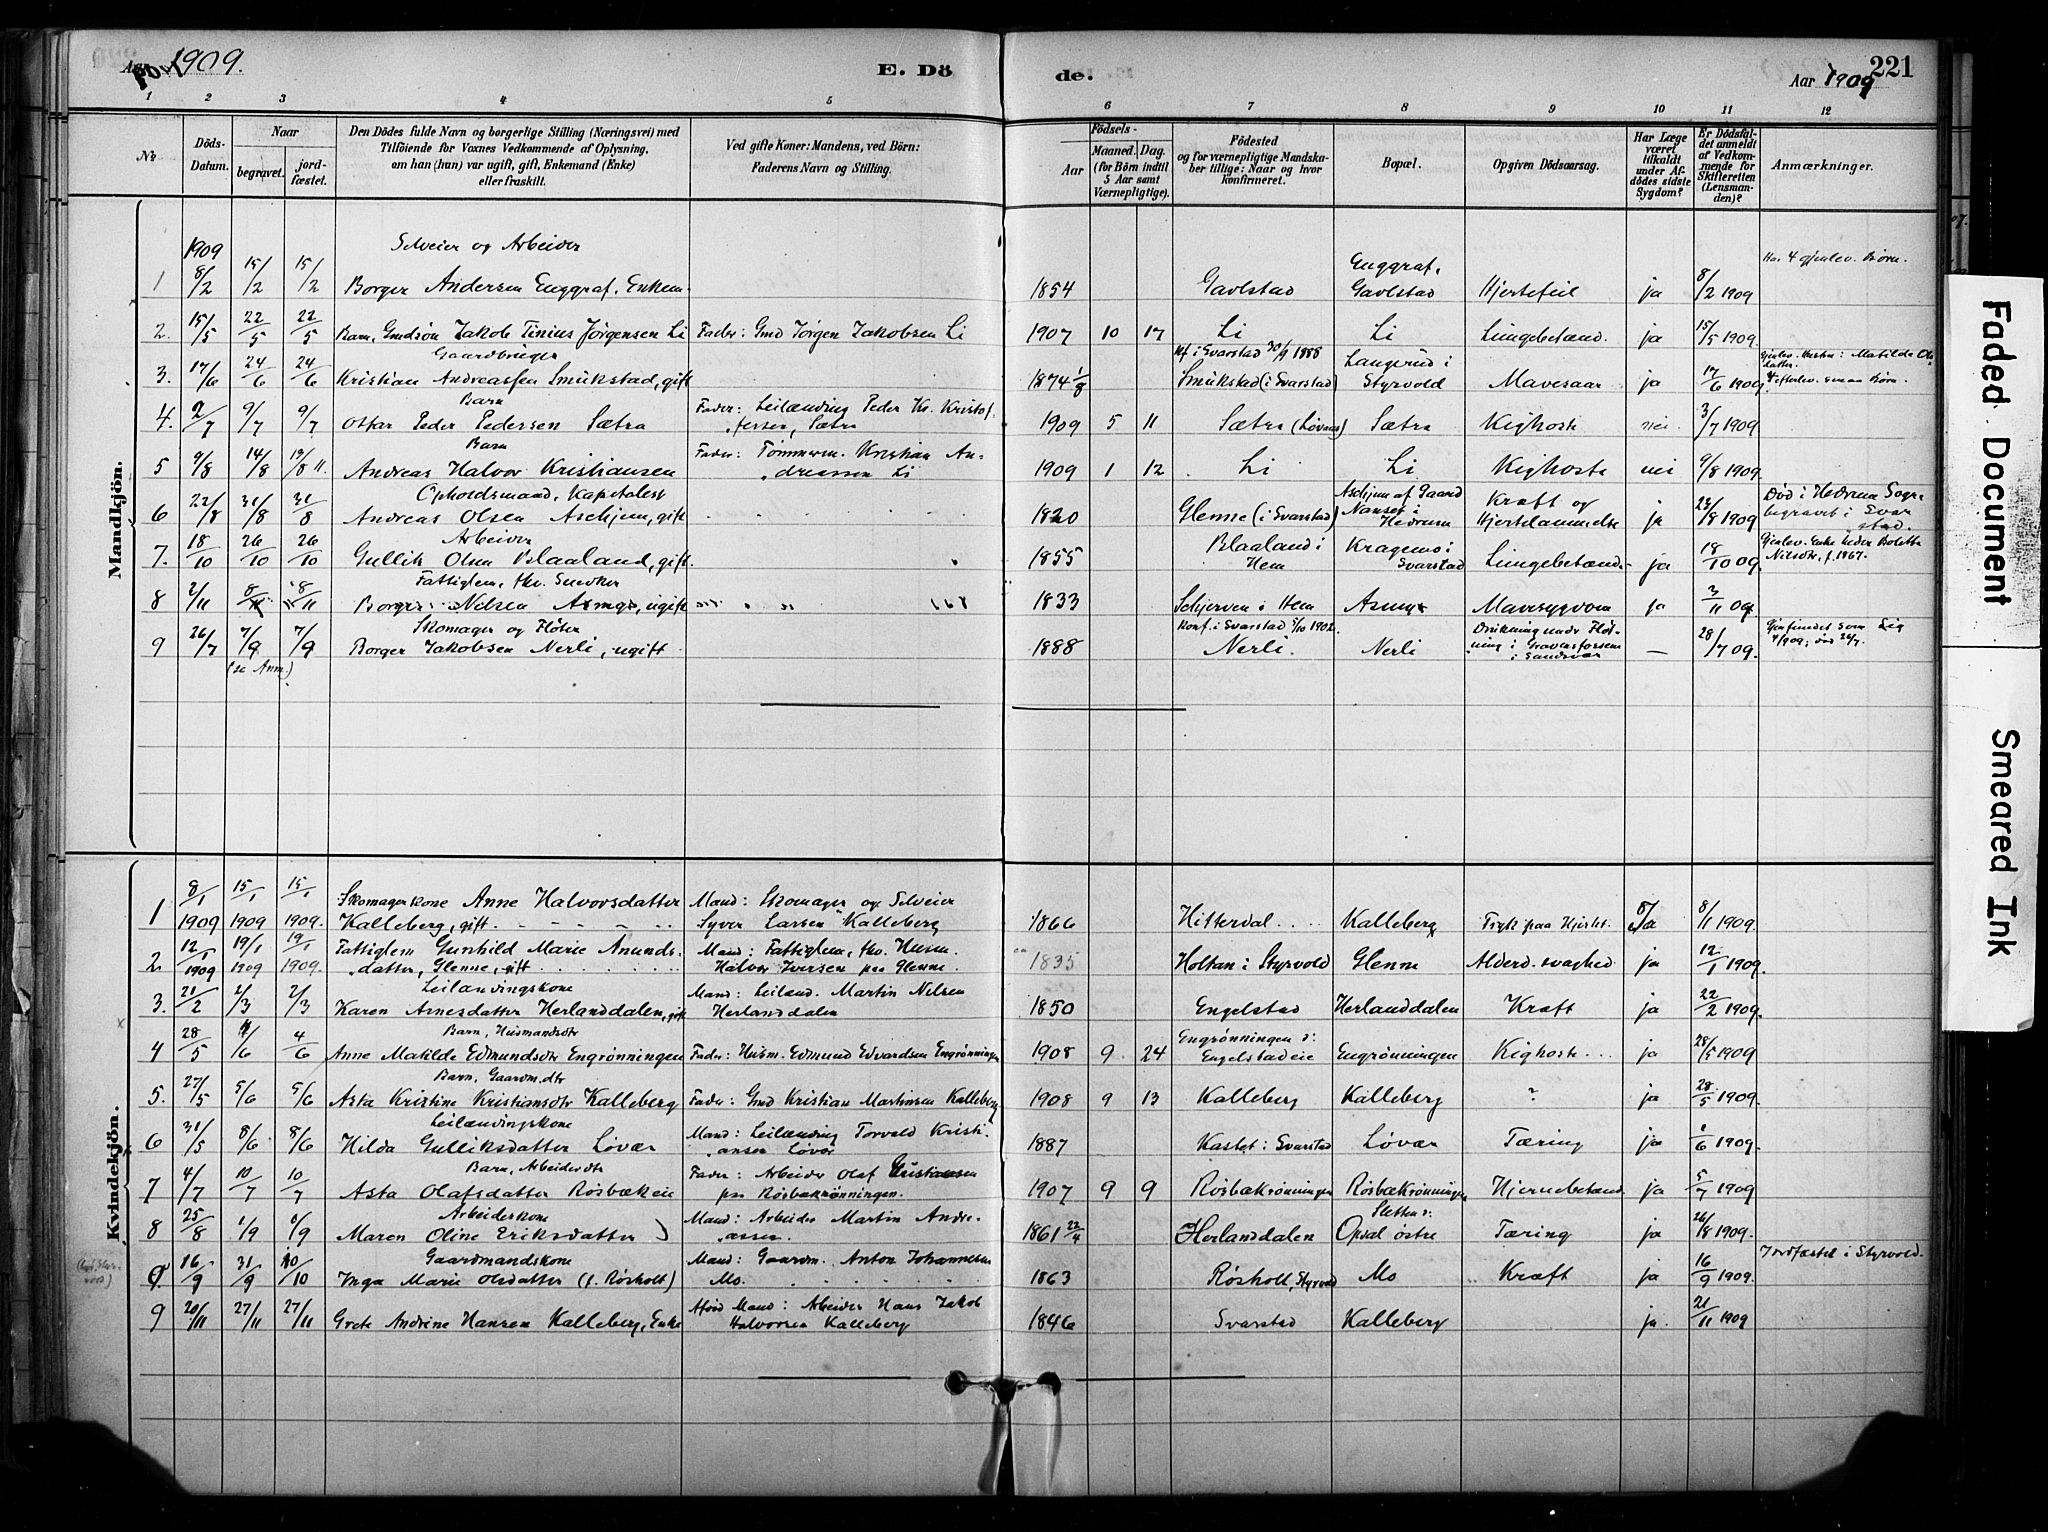 Aar 1909.
E. Döde.
221
Aar 1909
1 2 3 4 5 6 7 8 9 10 11 12
No.
Döds-Datum.
Naar
begravet.
jordfæstet.
Den Dödes fulde Navn og borgerlige Stilling (Næringsvei) med
Tilföiende for Voxnes Vedkommende af Oplysning,
om han (hun) var ugift, gift, Enkemand (Enke)
eller fraskilt.
Ved gifte Koner: Mandens, ved Börn:
Faderens Navn og Stilling.
Födsels-
Aar
Maaned. Dag.
(for Börn indtil
5 Aar samt
Værnepligtige).
Födested
og for værnepligtige Mandska-
ber tillige: Naar og hvor
konfirmeret.
Bopæl.
Opgiven Dödsaarsag.
Har Læge
været
tilkaldt
under Af-
dödes sidste
Sygdom?
Er Dödsfal-
det anmeldt
af Vedkom-
mende for
Skifteretten
(Lensman-
den)?
Anmærkninger.
Mandkjön.
1909 Selveier og Arbeider Enggraf. Har 4 gjenlev. Börn.
1 8/2 15/2 15/2 Borger Andersen Enggraf. Enkem. 1854 Gavlstad Gavlstad Hjertefeil ja 8/2 1909
2. 15/5 22/5 22/5 Barn, Gmdsön Jakob Tinius Jörgensen Li Fader: Gmd Jörgen Jakobsen Li 1907 10 17 Li Li Lungebetænd. ja 15/5 1909.
Gaardbruger Kf. i Svarstad 30/9 1888 Langerud i Gjenlev. Hustru: Matilde Ols
datter.
3. 17/6 24/6 24/6 Kristian Andreassen Smukstad, gift 1874 1/8 Smukstad (i Svarstad) Styrvold Mavesaar ja 17/6 1909. 4 efterlev. smaa Börn.
Barn Fader: Leilænding Peder Kr. Kristof-
4. 2/7 9/7 9/7 Oskar Peder Pedersen Sætra fersen, Sætra 1909 5 11 Sætra Sætra Kighoste nei 3/7 1909
Barn Fader: Tömmerm. Kristian An-
5 9/8 14/8 Andreas Halvor Kristiansen dreassen Li 1909 1 12 Li Li Kighoste nei 9/8 1909.
Opholdsmand, Kapitalist Askjem af Gaard Kraft og Död i Hedrum Sogn.
6 22/8 31/8 31/8 Andreas Olsen Askjem, gift 1820 Glenne (i Svarstad) Nanset i Hedrum Hjertelammelse ja 23/8 1909 begravet i Svarstad.
Arbeider Blaaland i Kragemo i
7. 18/10 26/10 26/10 Gullik Olsen Blaaland, gift. 1855 Hem Svarstad Lungebetænd. ja 18/10 09. Nilsdtr, f. 1867.
Fattiglem, fhv. Snedker
8 2/11 8/11 8/11 Borger Nelsen, ugift 1833 Skjerven i Hem Mavesygdom ja 3/11 09
Skomager og Flöter Konf. i Svarstad 5/10 1902. Drukning under Flöt- Gjenfundet som Lig
9 26/7 7/9 7/9 Borger Jakobsen Nerli, ugift 1888 Nerli. Nerli ning i Gravasfossen — 28/7 09. 4/909; död 26/7.
(se Anm) i Sandsvær
Kvindekjön.
1 8/1 15/1 15/1 Skomagerkone Anne Halvorsdatter Mand: Skomager og Selveier 8/1
1909 1909 1909. Kalleberg, gift. Syver Larsen Kalleberg 1866 Hitterdal Kalleberg Tryk paa Hjertet. ja 8/1 1909.
2. 12/1 19/1 19/1 Fattiglem Gunhild Marie Amunds- Mand: Fattiglem, fhv. Husm.
1909 1909 1909. datter, Glenne, gift Halvor Iversen paa Glenne. 1835 Holtan i Styrvold Glenne Alderd. svaghed ja 12/1 1909.
Leilændingskone Mand: Leilænd. Martin Nelsen
3. 21/2 2/3 2/3 Karen Arnesdatter Herlanddalen, gift Herlanddalen 1850 Engelstad Herlanddalen Kræft ja 22/2 1909.
Barn, Husmandsdtr Engrönningen
4 28/5 4/6 4/6 Anne Matilde Edmundsdtr Engrönningen Fader: Husm. Edmund Edvardsen Engrönningen 1908 9 24 Engelstadeie Engrönningen Kighoste ja 28/5 1909
Barn, Gaardm.dtr
5. 27/5 5/6 5/6 Asta Kristine Kristiansdtr Kalleberg Fader: Gmd Kristian Martinsen Kalleberg 1908 9 13 Kalleberg Kalleberg ? ja 28/5 1909.
Leilændingskone Mand: Leilænding Torvald Kristi-
6 31/5 8/6 8/6 Hilda Gulliksdatter Lövær ansen Lövær 1887 Kastet i Svarstad Lövær Tæring ja 1/6 1909.
Barn, Arbeiderdtr Fader: Arbeider Olaf Kristiansen
7 4/7 10/7 10/7 Asta Olafsdatter Rösbækeie paa Rösbækrönningen. 1907 9 9 Rösbækrönningen Rösbækrönningen Hjernebetænd. ja 5/7 1909
Arbeiderkone Mand: Arbeider Martin Andre- Sletten
8 25/8 1/9 1/9 Maren Oline Eriksdatter assen. 1861 22/4 Herlanddalen Opdal östre Tæring ja 26/8 1909.
Gaardmandskone Mand: Gaardm. Anton Johannesen Jordfæstet i Styrvold.
9. 16/9 31/9 10/10 Inga Marie Olsdatter (f. Rösholt) Mo. 1863 Rösholt, Styrvold Mo Kræft ja 16/9 1909.
Mand: Arbeider Hans Jakob
9 20/11 27/11 27/11 Grete Andrine Hansen Kalleberg, Enke Halvorsen Kalleberg 1846 Svarstad Kalleberg ja. 21/11 1909
Faded Document
Smeared Ink